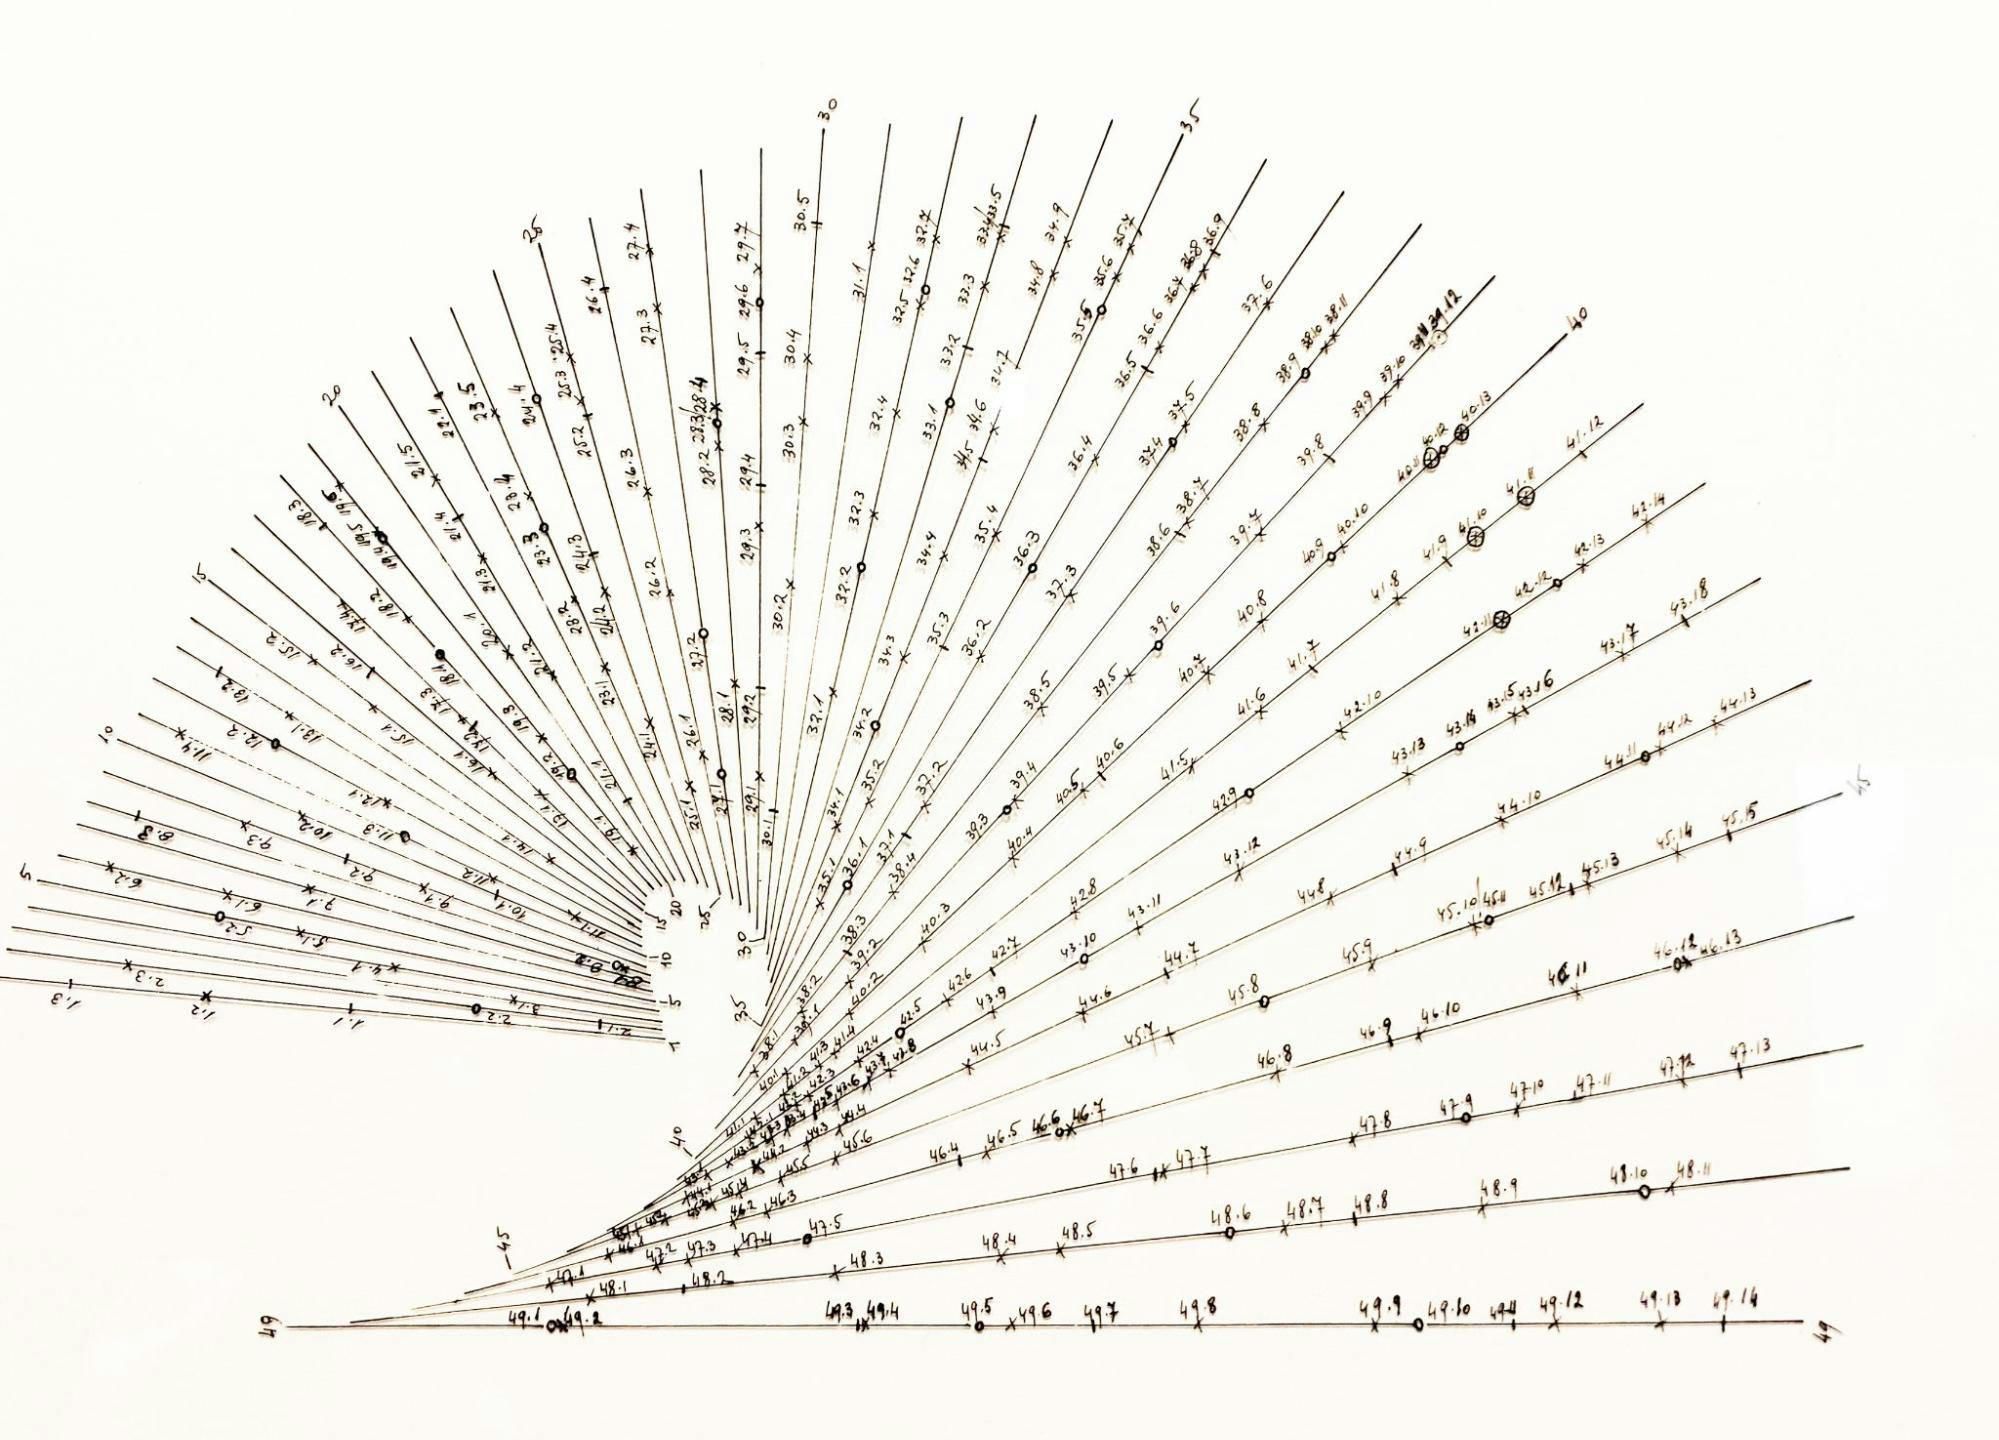 1
1.1
1.2
1.3
2.1
2.2
2.3
3.1
4.1
5
5
5.1
5.2
6.1
6.2
7.1
8.2
8.3
9.1
9.2
9.3
10
10
10.1
10.2
11.1
11.2
11.3
11.4
12.1
12.2
13.1
13.2
14.1
15
15
15.1
15.2
16.1
16.2
17.3
17.4
18.1
18.2
18.3
19.1
19.2
19.3
19.4
19.5
19.6
20
20
20.1
21.1
21.2
21.3
21.4
21.5
22.1
23.1
23.2
23.3
23.4
23.5
24.1
24.2
24.3
24.4
25
25
25.1
25.2
25.3
25.4
26.1
26.2
26.3
26.4
27.1
27.2
27.3
27.4
28.1
28.2
28.3/28.4
29.1
29.2
29.3
29.4
29.5
29.6
29.7
30
30
30.1
30.2
30.3
30.4
30.5
31.1
32.1
32.2
32.3
32.4
32.5
32.6
32.7
33.1
33.2
33.3
33.4/33.5
34.1
34.2
34.3
34.4
34.5
34.6
34.7
34.8
34.9
35
35
35.1
35.2
35.3
35.4
35.5
35.6
35.7
36.1
36.2
36.3
36.4
36.5
36.6
36.7
36.8
36.9
37.1
37.2
37.3
37.4
37.5
37.6
38.1
38.2
38.3
38.4
38.5
38.6
38.7
38.8
38.9
38.10
38.11
39.1
39.2
39.3
39.4
39.5
39.6
39.7
39.8
39.9
39.10
39.11
39.12
40
40
40.1
40.2
40.3
40.4
40.5
40.6
40.7
40.8
40.9
40.10
40.11
40.12
40.13
41.1
41.2
41.3
41.4
41.5
41.6
41.7
41.8
41.9
41.10
41.11
41.12
42.3
42.4
42.5
42.6
42.7
42.8
42.9
42.10
42.11
42.12
42.13
42.14
43.6
43.7
43.8
43.9
43.10
43.11
43.12
43.13
43.14
43.15
43.16
43.17
43.18
44.1
44.2
44.3
44.4
44.5
44.6
44.7
44.8
44.9
44.10
44.11
44.12
44.13
45
45
45.4
45.5
45.6
45.7
45.8
45.9
45.10/45.11
45.12
45.13
45.14
45.15
46.1
46.2
46.3
46.4
46.5
46.6
46.7
46.8
46.9
46.10
46.11
46.12
46.13
47.1
47.2
47.3
47.4
47.5
47.6
47.7
47.8
47.9
47.10
47.11
47.12
47.13
48.1
48.2
48.3
48.4
48.5
48.6
48.7
48.8
48.9
48.10
48.11
49
49.1
49.2
49.3
49.4
49.5
49.6
49.7
49.8
49.9
49.10
49.11
49.12
49.13
49.14
49